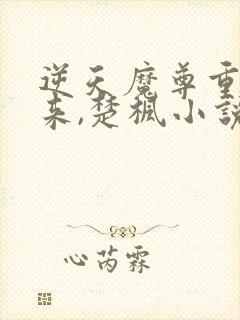 逆天魔尊重
来,楚枫小说
心芮霖